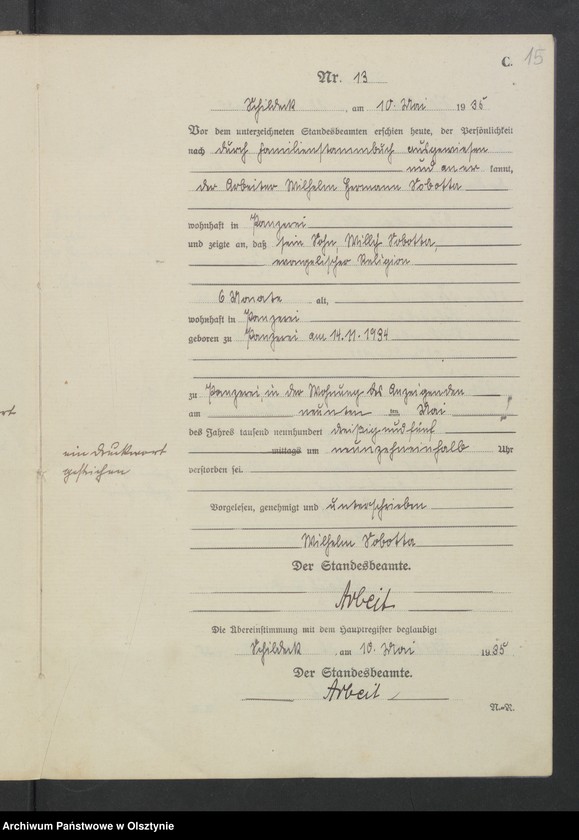 C. 15
Nr. 13
Schildeck, am 10. Mai 1935
Vor dem unterzeichneten Standesbeamten erschien heute, der Persönlichkeit
nach durch Familienstammbuch ausgewiesen
und an er kannt,
der Arbeiter Wilhelm Hermann Sobotta
wohnhaft in Panzerei
und zeigte an, daß sein Sohn, Willy Sobotta,
evangelischer Religion
6 Monate alt,
wohnhaft in Panzerei
geboren zu Panzerei am 14.11.1934
zu Panzerei, in der Wohnung des Anzeigenden
am neunten ten Mai
des Jahres tausend neunhundert dreißig und fünf
mittags um neunzehneinhalb Uhr
verstorben sei.
ein Druckwort
gestrichen
Vorgelesen, genehmigt und unterschrieben
Wilhelm Sobotta
Der Standesbeamte.
Arbeit
Die Übereinstimmung mit dem Hauptregister beglaubigt
Schildeck, am 10. Mai 1935
Der Standesbeamte.
Arbeit
Archiwum Państwowe w Olsztynie